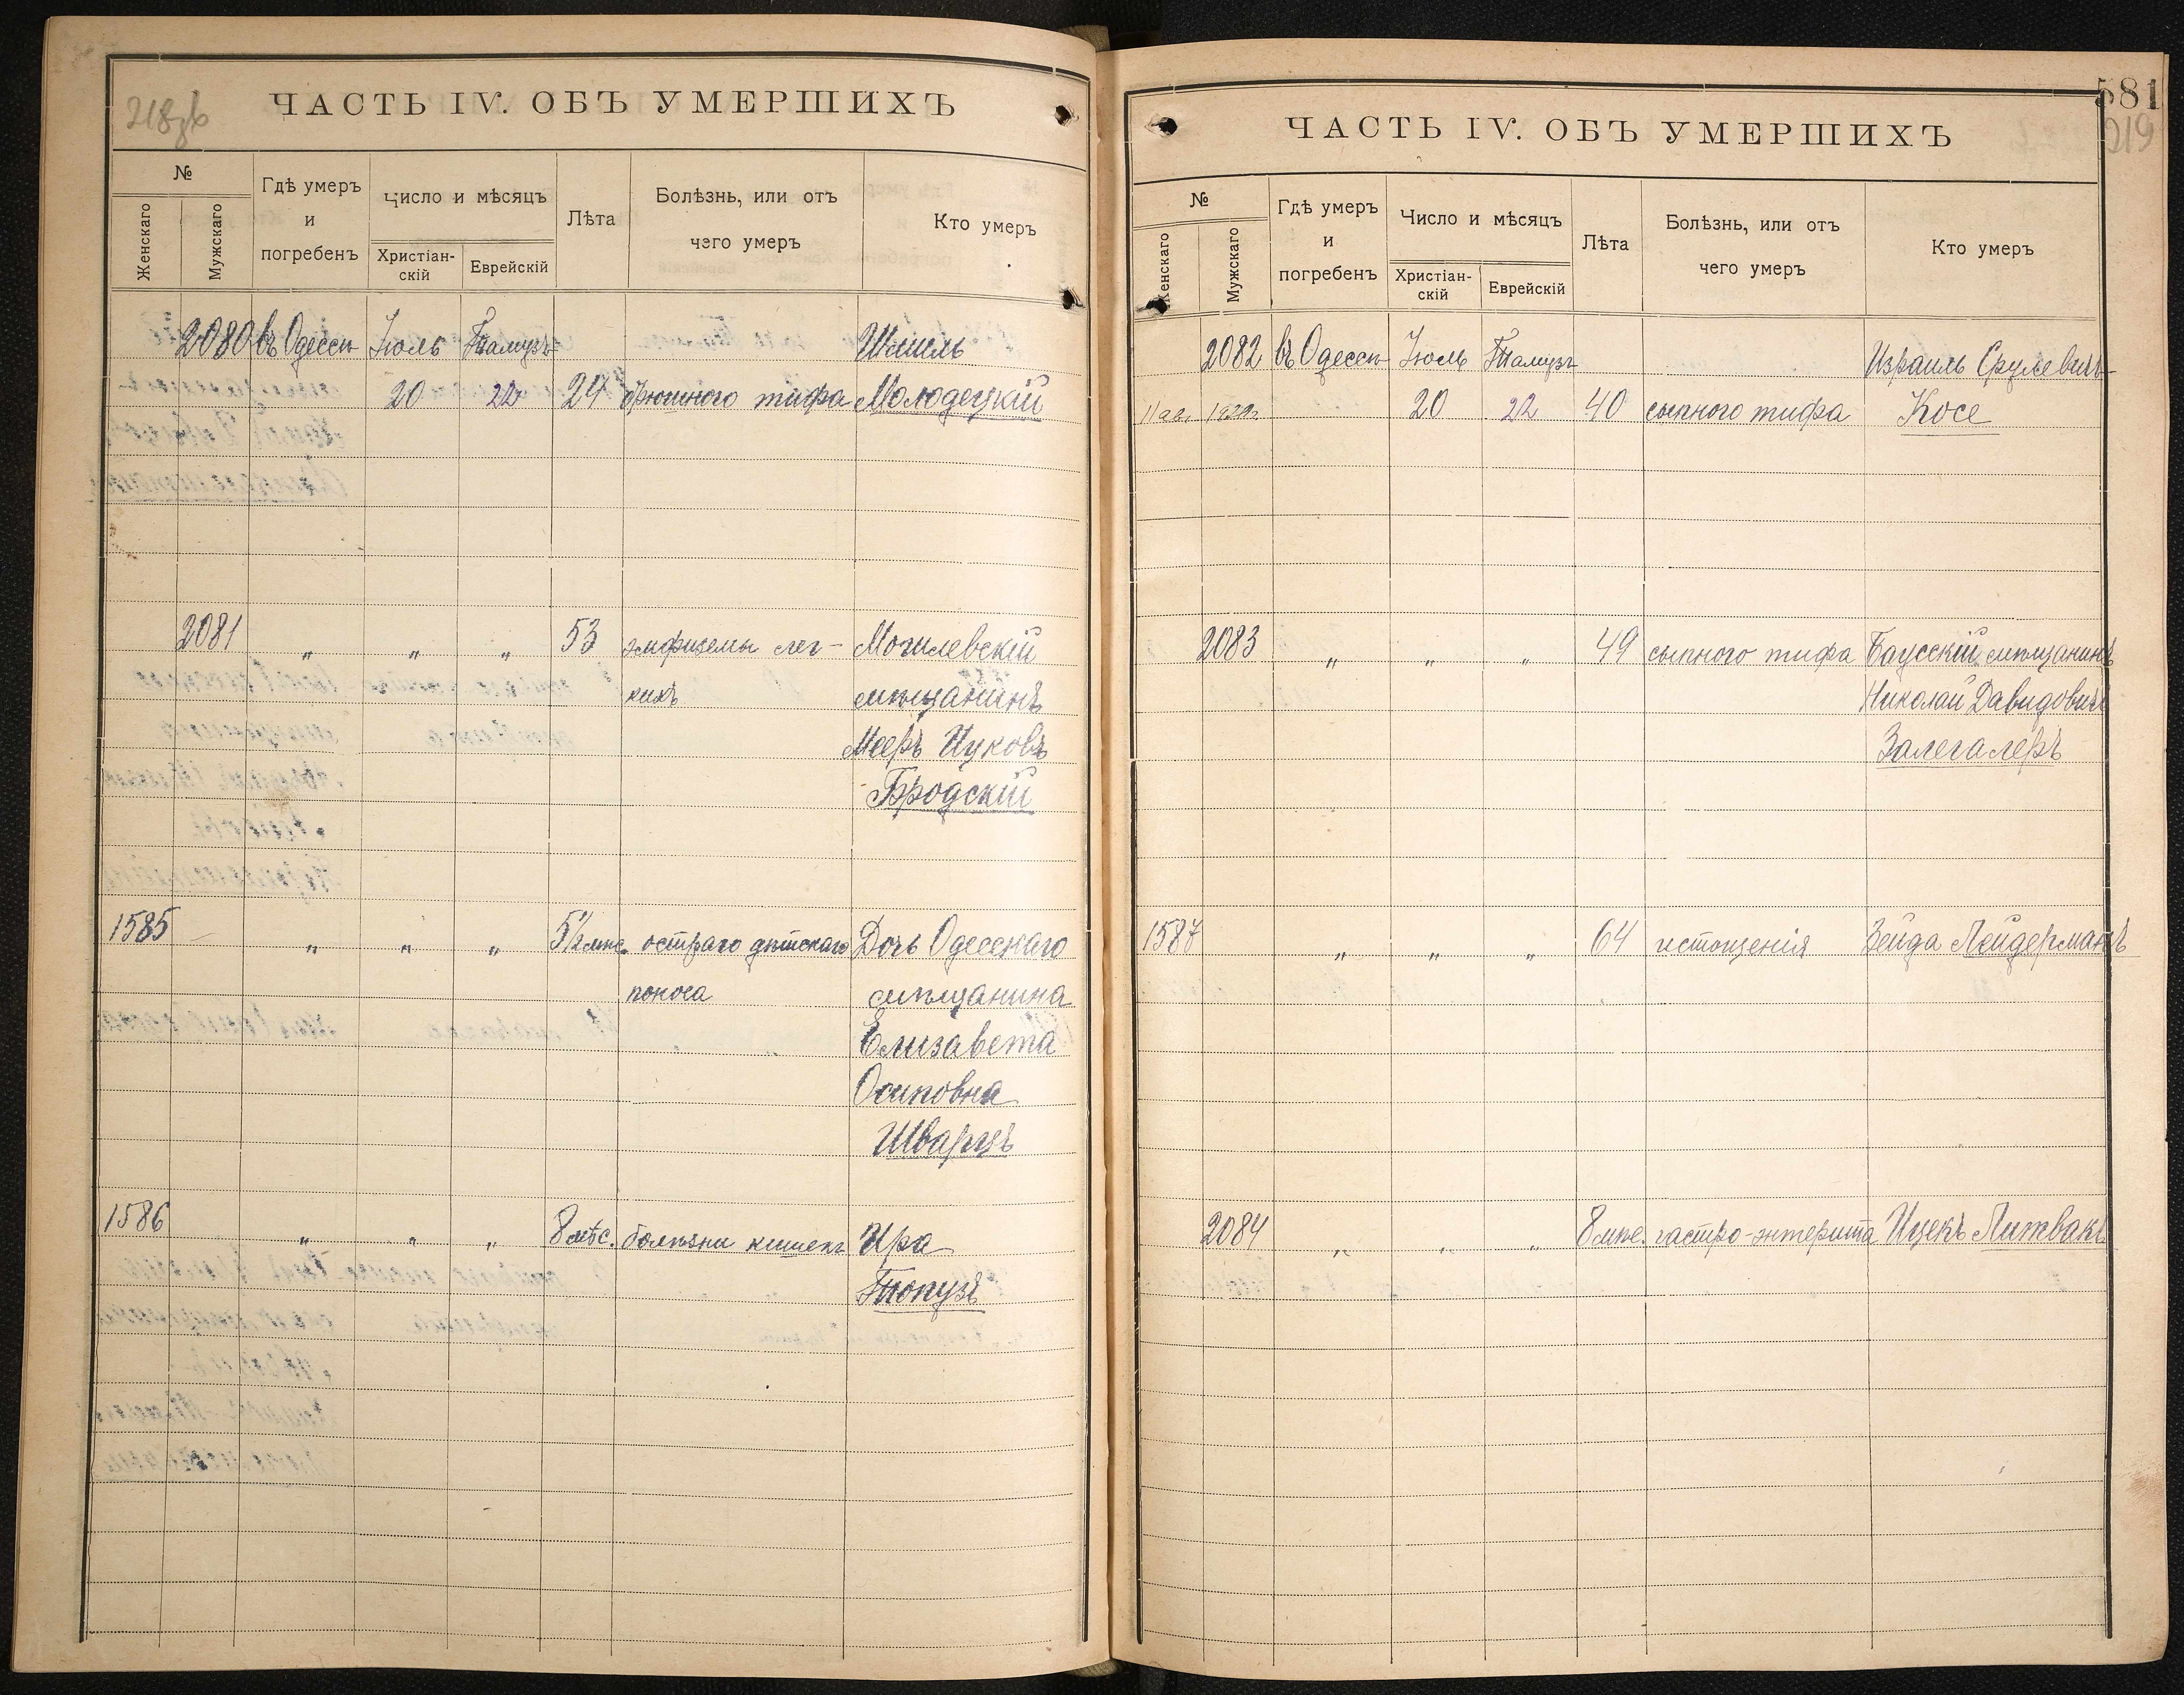 ЧАСТЬ IV. ОБЪ УМЕРШИХЪ
№
Женскаго
Мужскаго
Гдѣ умеръ
и
погребенъ
Число и мѣсяцъ
Христіан-
скій
Еврейскій
Лѣта
Болѣзнь, или отъ
чего умеръ
Кто умеръ
2080 въ Одессѣ Іюль Тамузъ Шмиль
20 22 24 брюшного тифа Молодецкій
2081 „ „ „ 53 эмфиземы лег- Могилевскій
кихъ мѣщанинъ
Мееръ Ицковъ
Бродскій
1585 „ „ „ 5½ мѣс. остраго дѣтскаго Дочь Одесскаго
поноса мѣщанина
Елизавета
Осиповна
Шварцъ
1586 „ „ „ 8 мѣс. болѣзни кишекъ Ира
Топузъ
581
219
ЧАСТЬ IV. ОБЪ УМЕРШИХЪ
№
Женскаго
Мужскаго
Гдѣ умеръ
и
погребенъ
Число и мѣсяцъ
Христіан-
скій
Еврейскій
Лѣта
Болѣзнь, или отъ
чего умеръ
Кто умеръ
2082 въ Одессѣ Іюль Тамузъ Израиль Срулевичъ
20 22 40 сыпного тифа Косе
2083 „ „ „ 49 сыпного тифа Баусскій мѣщанинъ
Николай Давидовичъ
Залегалеръ
1587 „ „ „ 64 истощенія Зейда Лейдерманъ
2084 „ „ „ 8 мѣс. гастро-энтерита Ицекъ Литвакъ